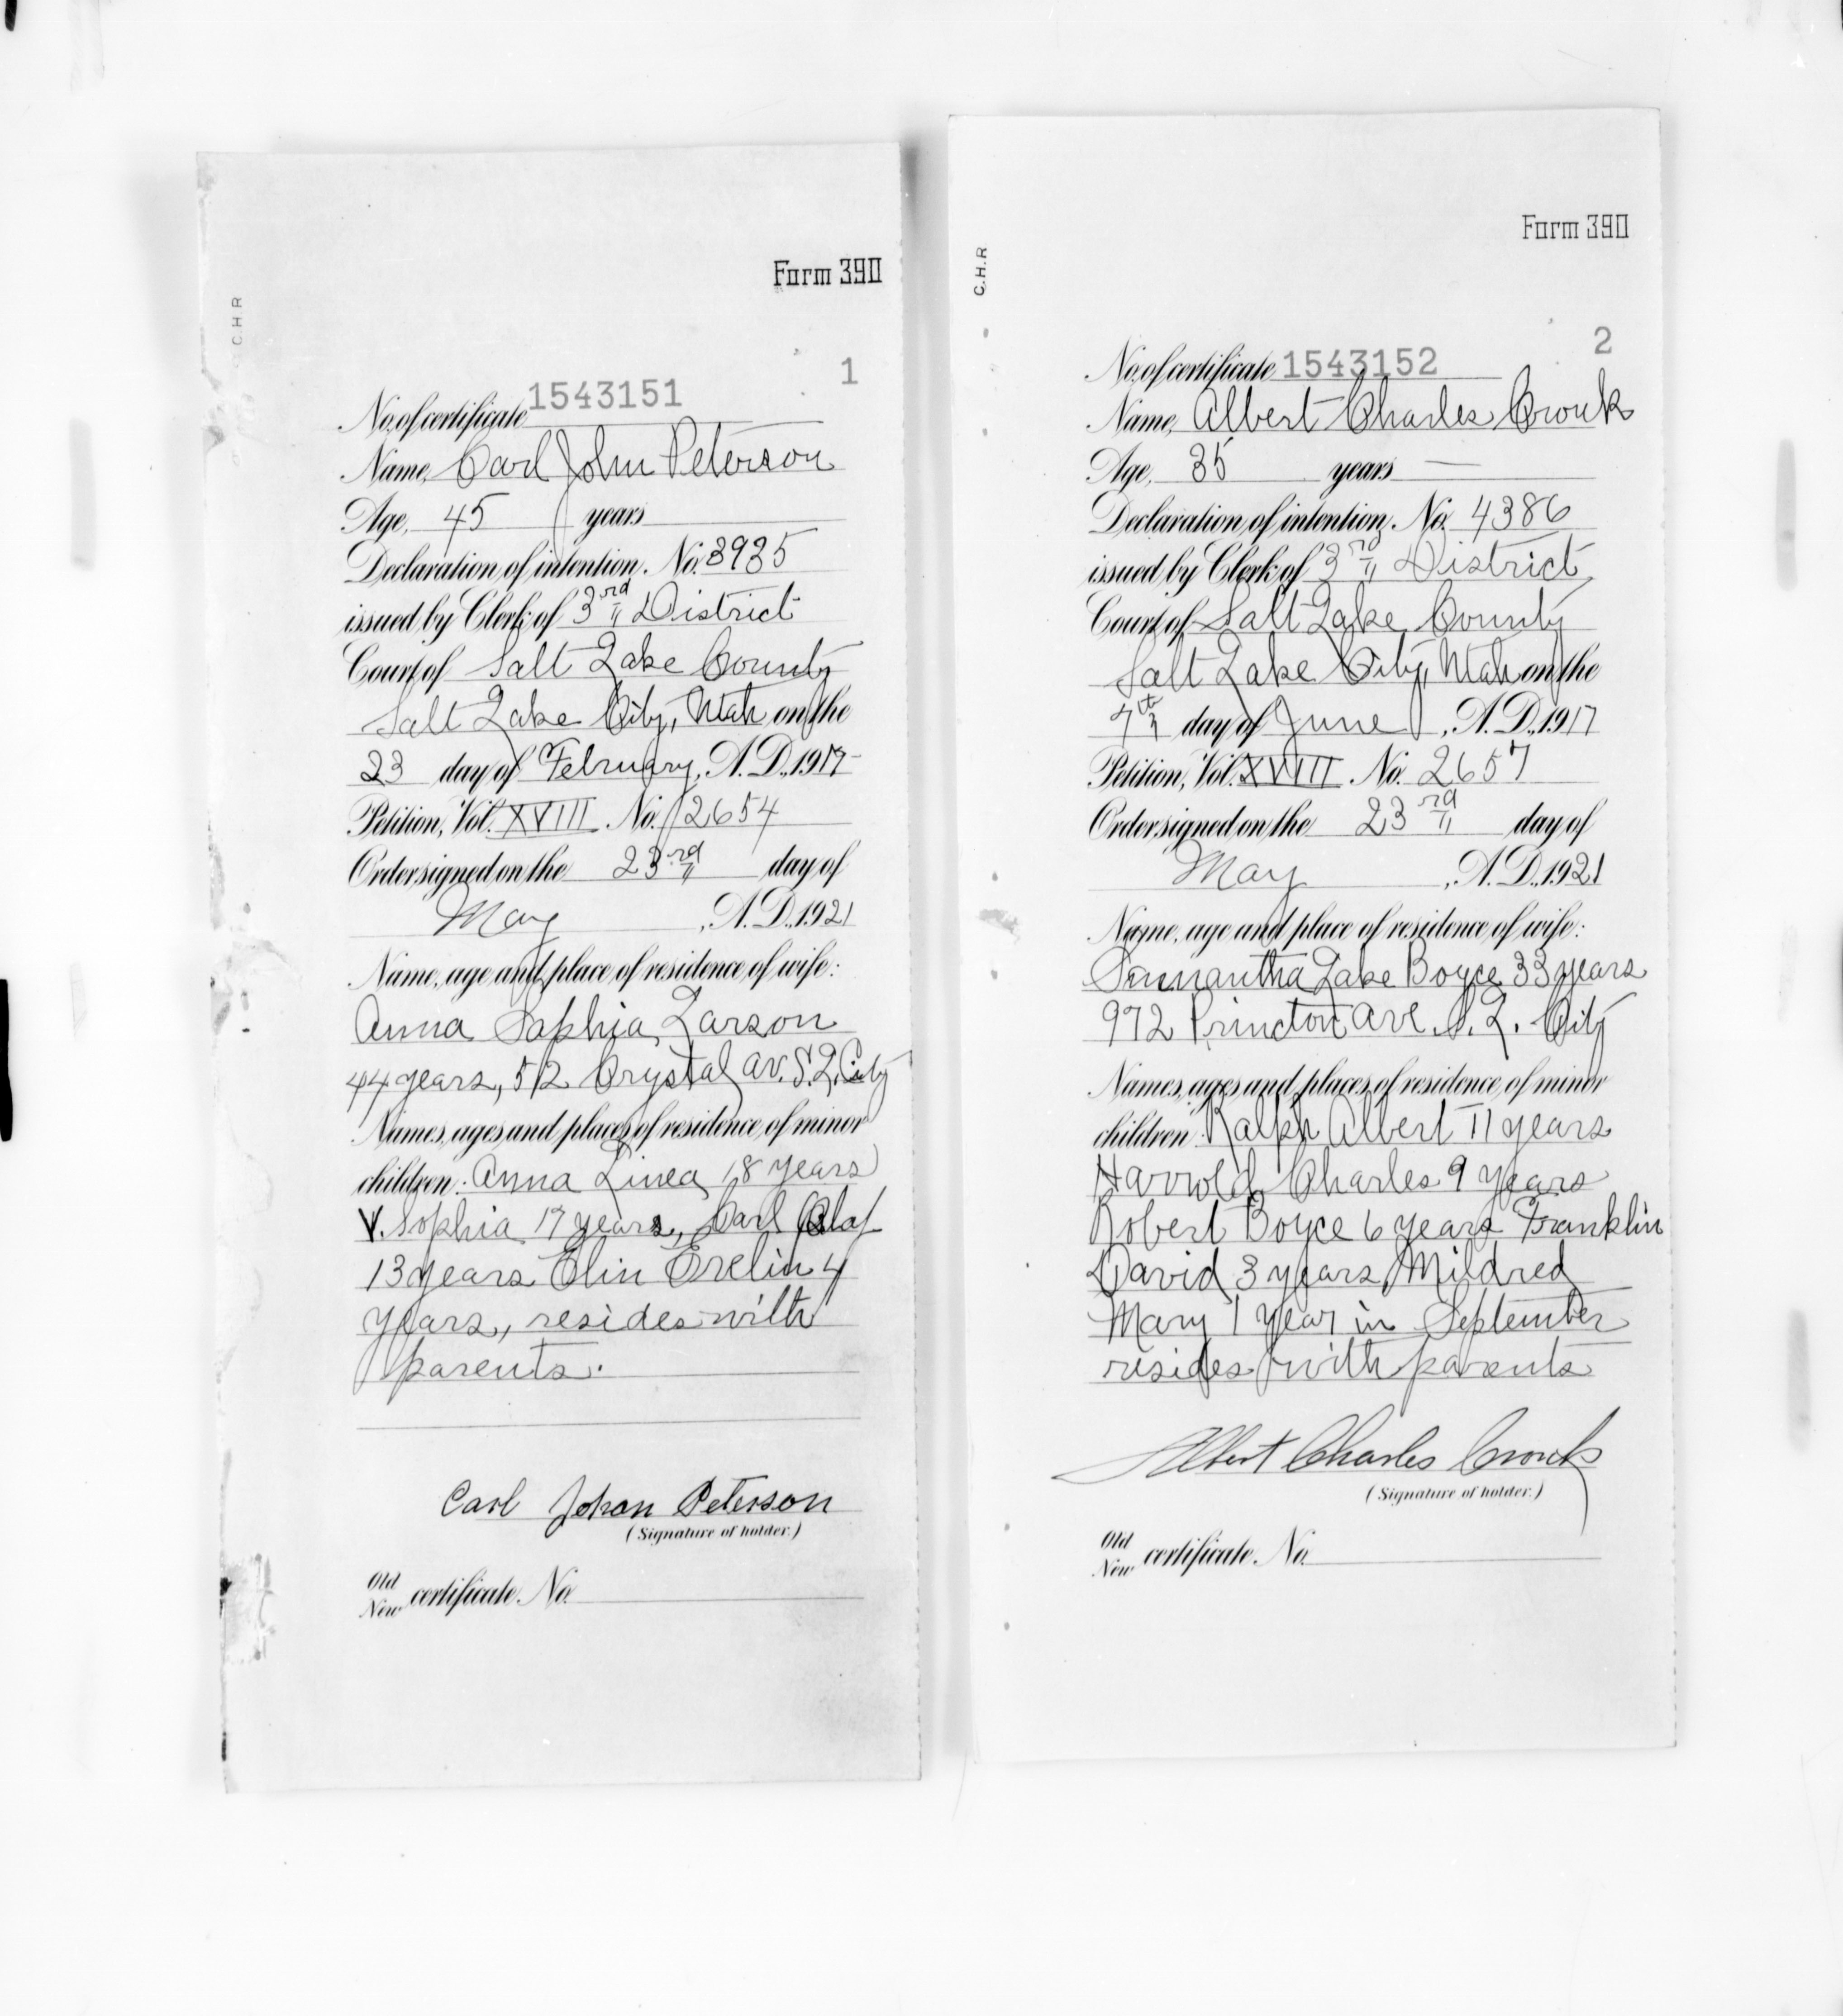 C.H.R
Form 390
1
No. of certificate 1543151
Name, Carl John Peterson
Age, 45 years
Declaration of intention, No. 3935
issued by Clerk of 3rd District
Court of Salt Lake County
Salt Lake City, Utah on the
23 day of February, A.D., 1917
Petition, Vol. XVIII No. 2654
Order signed on the 23rd day of
May, A.D., 1921
Name, age and place of residence of wife:
Anna Sophia Larson
44 years, 512 Crystal av. S.L. City
Names, ages and places of residence of minor
children: Anna Linea 18 years
V. Sophia 17 years, Carl Olaf
13 years Elin Evelin 4
years, resides with
parents.
Carl Johan Peterson
(Signature of holder.)
Old
New certificate No.
C.H.R
Form 390
2
No. of certificate 1543152
Name, Albert Charles Crouk
Age, 35 years —
Declaration of intention, No. 4386
issued by Clerk of 3rd District
Court of Salt Lake County
Salt Lake City, Utah on the
7th day of June, A.D., 1917
Petition, Vol. XVIII No. 2657
Order signed on the 23rd day of
May, A.D., 1921
Name, age and place of residence of wife:
Lake Boyce 33 years
972 Princton ave S. L. City
Names, ages and places of residence of minor
children: Ralph Albert 11 years
Harrold Charles 9 years
Robert Boyce 6 years Franklin
David 3 years, Mildred
Mary 1 year in September
resides with parents
Albert Charles Crouk
(Signature of holder.)
Old
New certificate No.